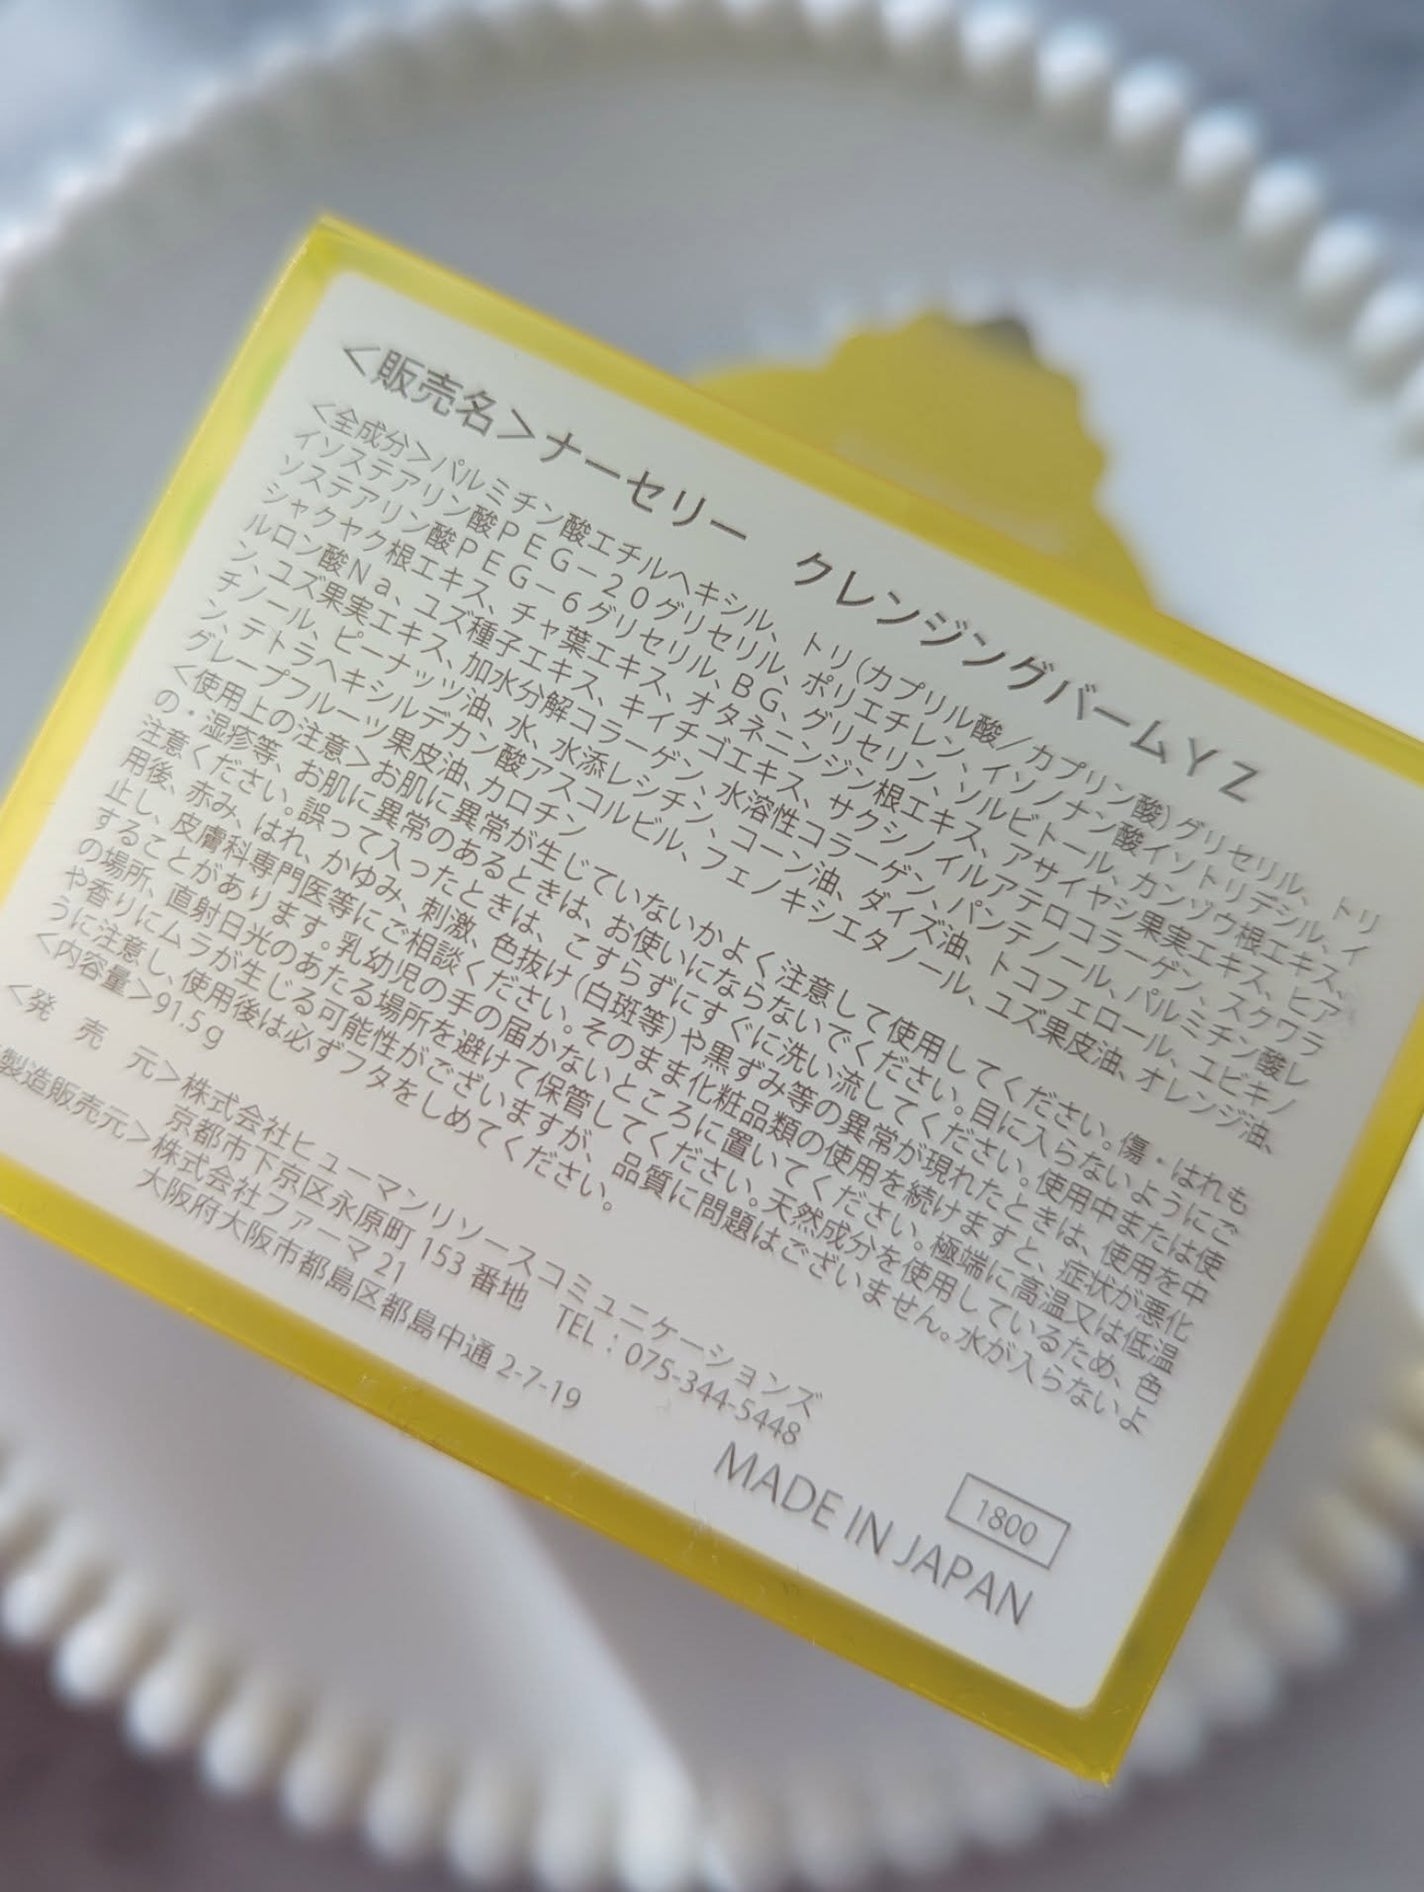 <販売名>ナーセリー クレンジングバームＹＺ
<全成分>パルミチン酸エチルヘキシル、トリ(カプリル酸／カプリン酸)グリセリル、トリ
イソステアリン酸ＰＥＧ－２０グリセリル、ポリエチレン、イソノナン酸イソトリデシル、イ
ソステアリン酸ＰＥＧ－６グリセリル、ＢＧ、グリセリン、ソルビトール、カンゾウ根エキス、
シャクヤク根エキス、チャ葉エキス、オタネニンジン根エキス、アサイヤシ果実エキス、ヒア
ルロン酸Ｎａ、ユズ種子エキス、キイチゴエキス、サクシノイルアテロコラーゲン、スクワラ
ン、ユズ果実エキス、加水分解コラーゲン、水溶性コラーゲン、パンテノール、パルミチン酸レ
チノール、ピーナッツ油、水、水添レシチン、コーン油、ダイズ油、トコフェロール、ユビキノ
ン、テトラヘキシルデカン酸アスコルビル、フェノキシエタノール、ユズ果皮油、オレンジ油、
グレープフルーツ果皮油、カロチン
<使用上の注意>お肌に異常が生じていないかよく注意して使用してください。傷・はれも
の・湿疹等、お肌に異常のあるときは、お使いにならないでください。目に入らないようにご
注意ください。誤って入ったときは、こすらずにすぐに洗い流してください。使用中または使
用後、赤み、はれ、かゆみ、刺激、色抜け(白斑等)や黒ずみ等の異常が現れたときは、使用を中
止し、皮膚科専門医等にご相談ください。そのまま化粧品類の使用を続けますと、症状が悪化
することがあります。乳幼児の手の届かないところに置いてください。極端に高温又は低温
の場所、直射日光のあたる場所を避けて保管してください。天然成分を使用しているため、色
や香りにムラが生じる可能性がございますが、品質に問題はございません。水が入らないよ
うに注意し、使用後は必ずフタをしめてください。
<内容量>91.5g
<発 売 元>株式会社ヒューマンリソースコミュニケーションズ
京都市下京区永原町 153 番地 TEL : 075-344-5448
製造販売元>株式会社ファーマ 21
大阪府大阪市都島区都島中通 2-7-19
1800
MADE IN JAPAN